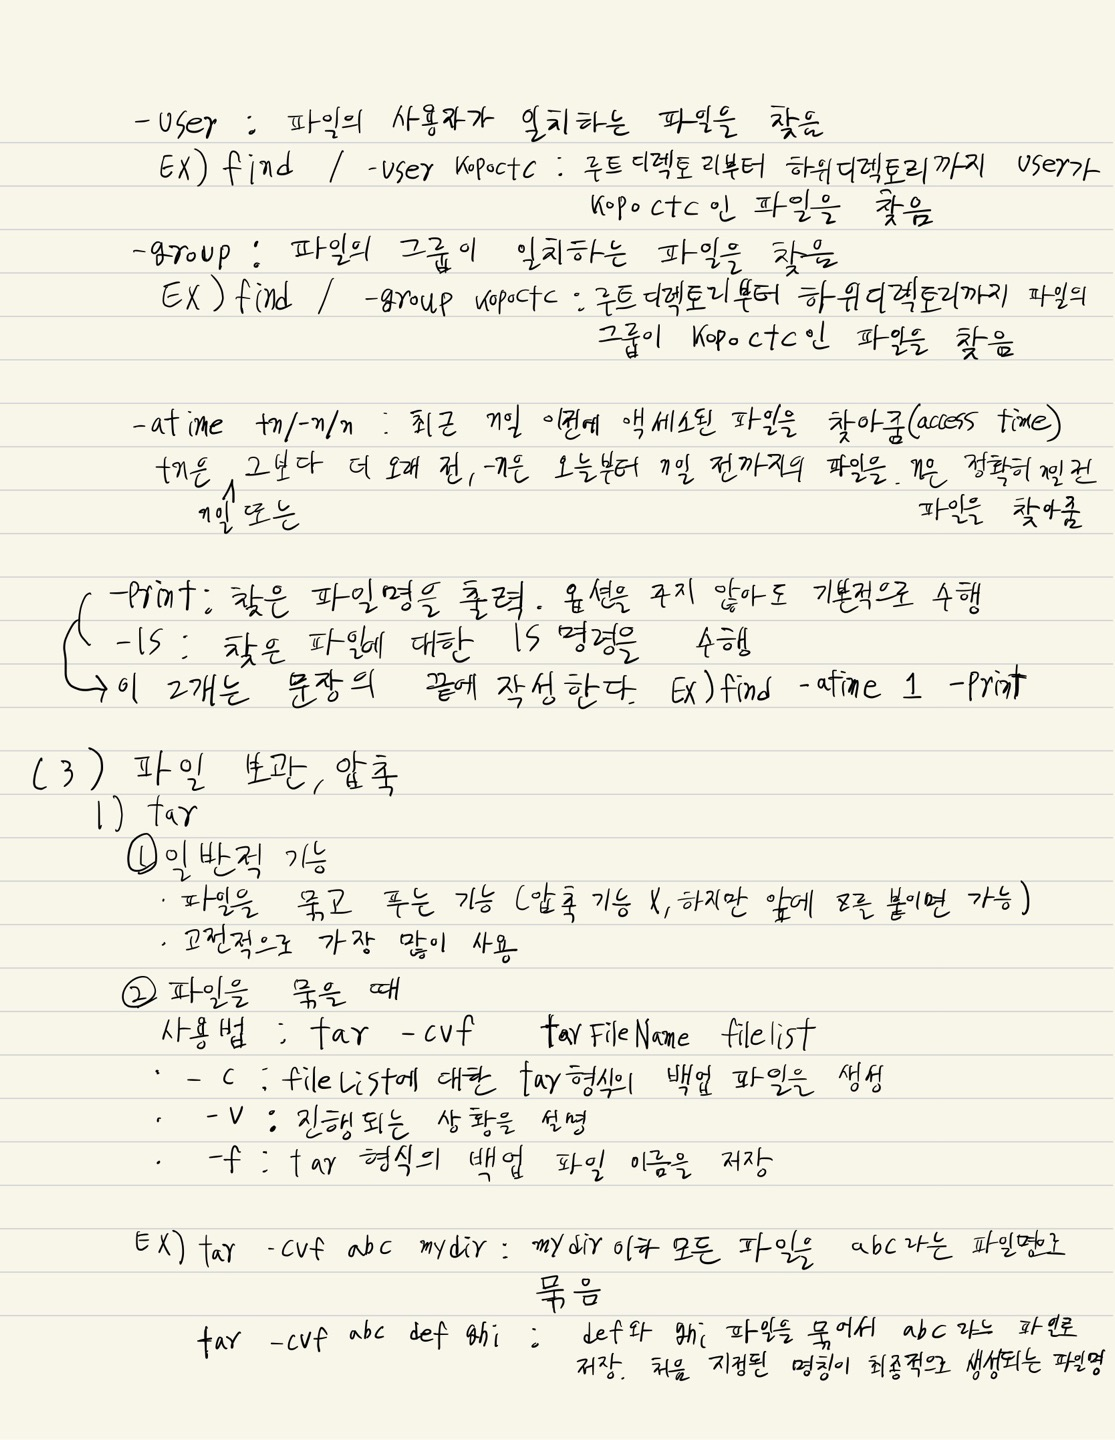 -user : 파일의 사용자가 일치하는 파일을 찾음
EX) find / -user kopoctc : 루트 디렉토리부터 하위디렉토리까지 user가
kopoctc인 파일을 찾음
-group : 파일의 그룹이 일치하는 파일을 찾음
EX) find / -group kopoctc : 루트디렉토리부터 하위디렉토리까지 파일의
그룹이 kopoctc인 파일을 찾음
-atime +n/-n/n : 최근 n일 이전에 액세스된 파일을 찾아줌(access time)
+n은 그보다 더 오래 전, -n은 오늘부터 n일 전까지의 파일을. n은 정확히 n일 전
n일 또는
파일을 찾아줌
-print : 찾은 파일명을 출력. 옵션을 주지 않아도 기본적으로 수행
-ls : 찾은 파일에 대한 ls 명령을 수행
→ 이 2개는 문장의 끝에 작성한다. EX) find -atime 1 -print
(3) 파일 보관, 압축
1) tar
① 일반적 기능
· 파일을 묶고 푸는 기능 (압축 기능 X, 하지만 앞에 z를 붙이면 가능)
· 고전적으로 가장 많이 사용
② 파일을 묶을 때
사용법 : tar -cvf tarFileName filelist
· -c : fileList에 대한 tar형식의 백업 파일을 생성
· -v : 진행되는 상황을 설명
· -f : tar 형식의 백업 파일 이름을 저장
EX) tar -cvf abc mydir : mydir 이하 모든 파일을 abc라는 파일명으로
묶음
tar -cvf abc def ghi : def와 ghi 파일을 묶어서 abc라는 파일로
저장. 처음 지정된 명칭이 최종적으로 생성되는 파일명